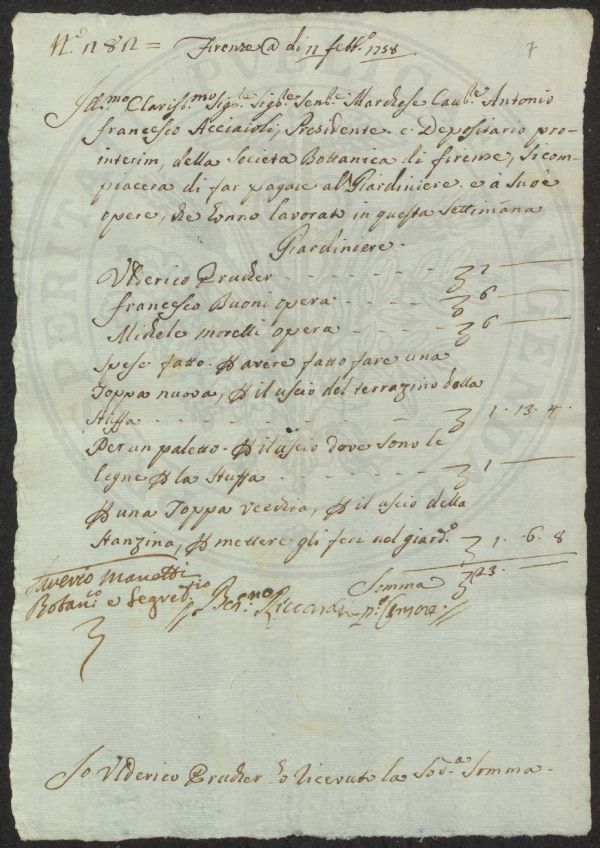 N.º 282 = Firenze @ di 11 febb.º 1758
7
Ill.mo Clariss.mo Sig.re Sig.re Sen.re Marchese Cau.re Antonio
francesco Acciaioli, Presidente e Depositario pro-
interim, della Societa Bottanica di firenze, si com-
piacera di far pagare al Giardiniere e à Suoè
opere, che hanno lavorato in questa Settimana
Giardiniere
Ulderico Prucher - - - - - - - ʒ 7 —
francesco Buoni opera - - - - ʒ 6 —
Michele Morelli opera - - - - ʒ 6 —
Spese fatto ꝑ avere fatto fare una
Toppa nuova, ꝑ il uscio del terrazino della
Stuffa - - - - - - - - - - ʒ 1. 13. 4.
Per un paletto ꝑ il uscio dove sono le
legne ꝑ la Stuffa - - - - - - ʒ 1 —
ꝑ una Toppa vecchia, ꝑ il uscio della
Stanzina, ꝑ mettere gli feri nel giard.º ʒ 1. 6. 8
Somma ʒ 23. —
Saverio Manetti
Botan.co e Segret.rio
Ber.no Riccardi
Io Ulderico Prucher ho ricevuto la Sod.a Somma